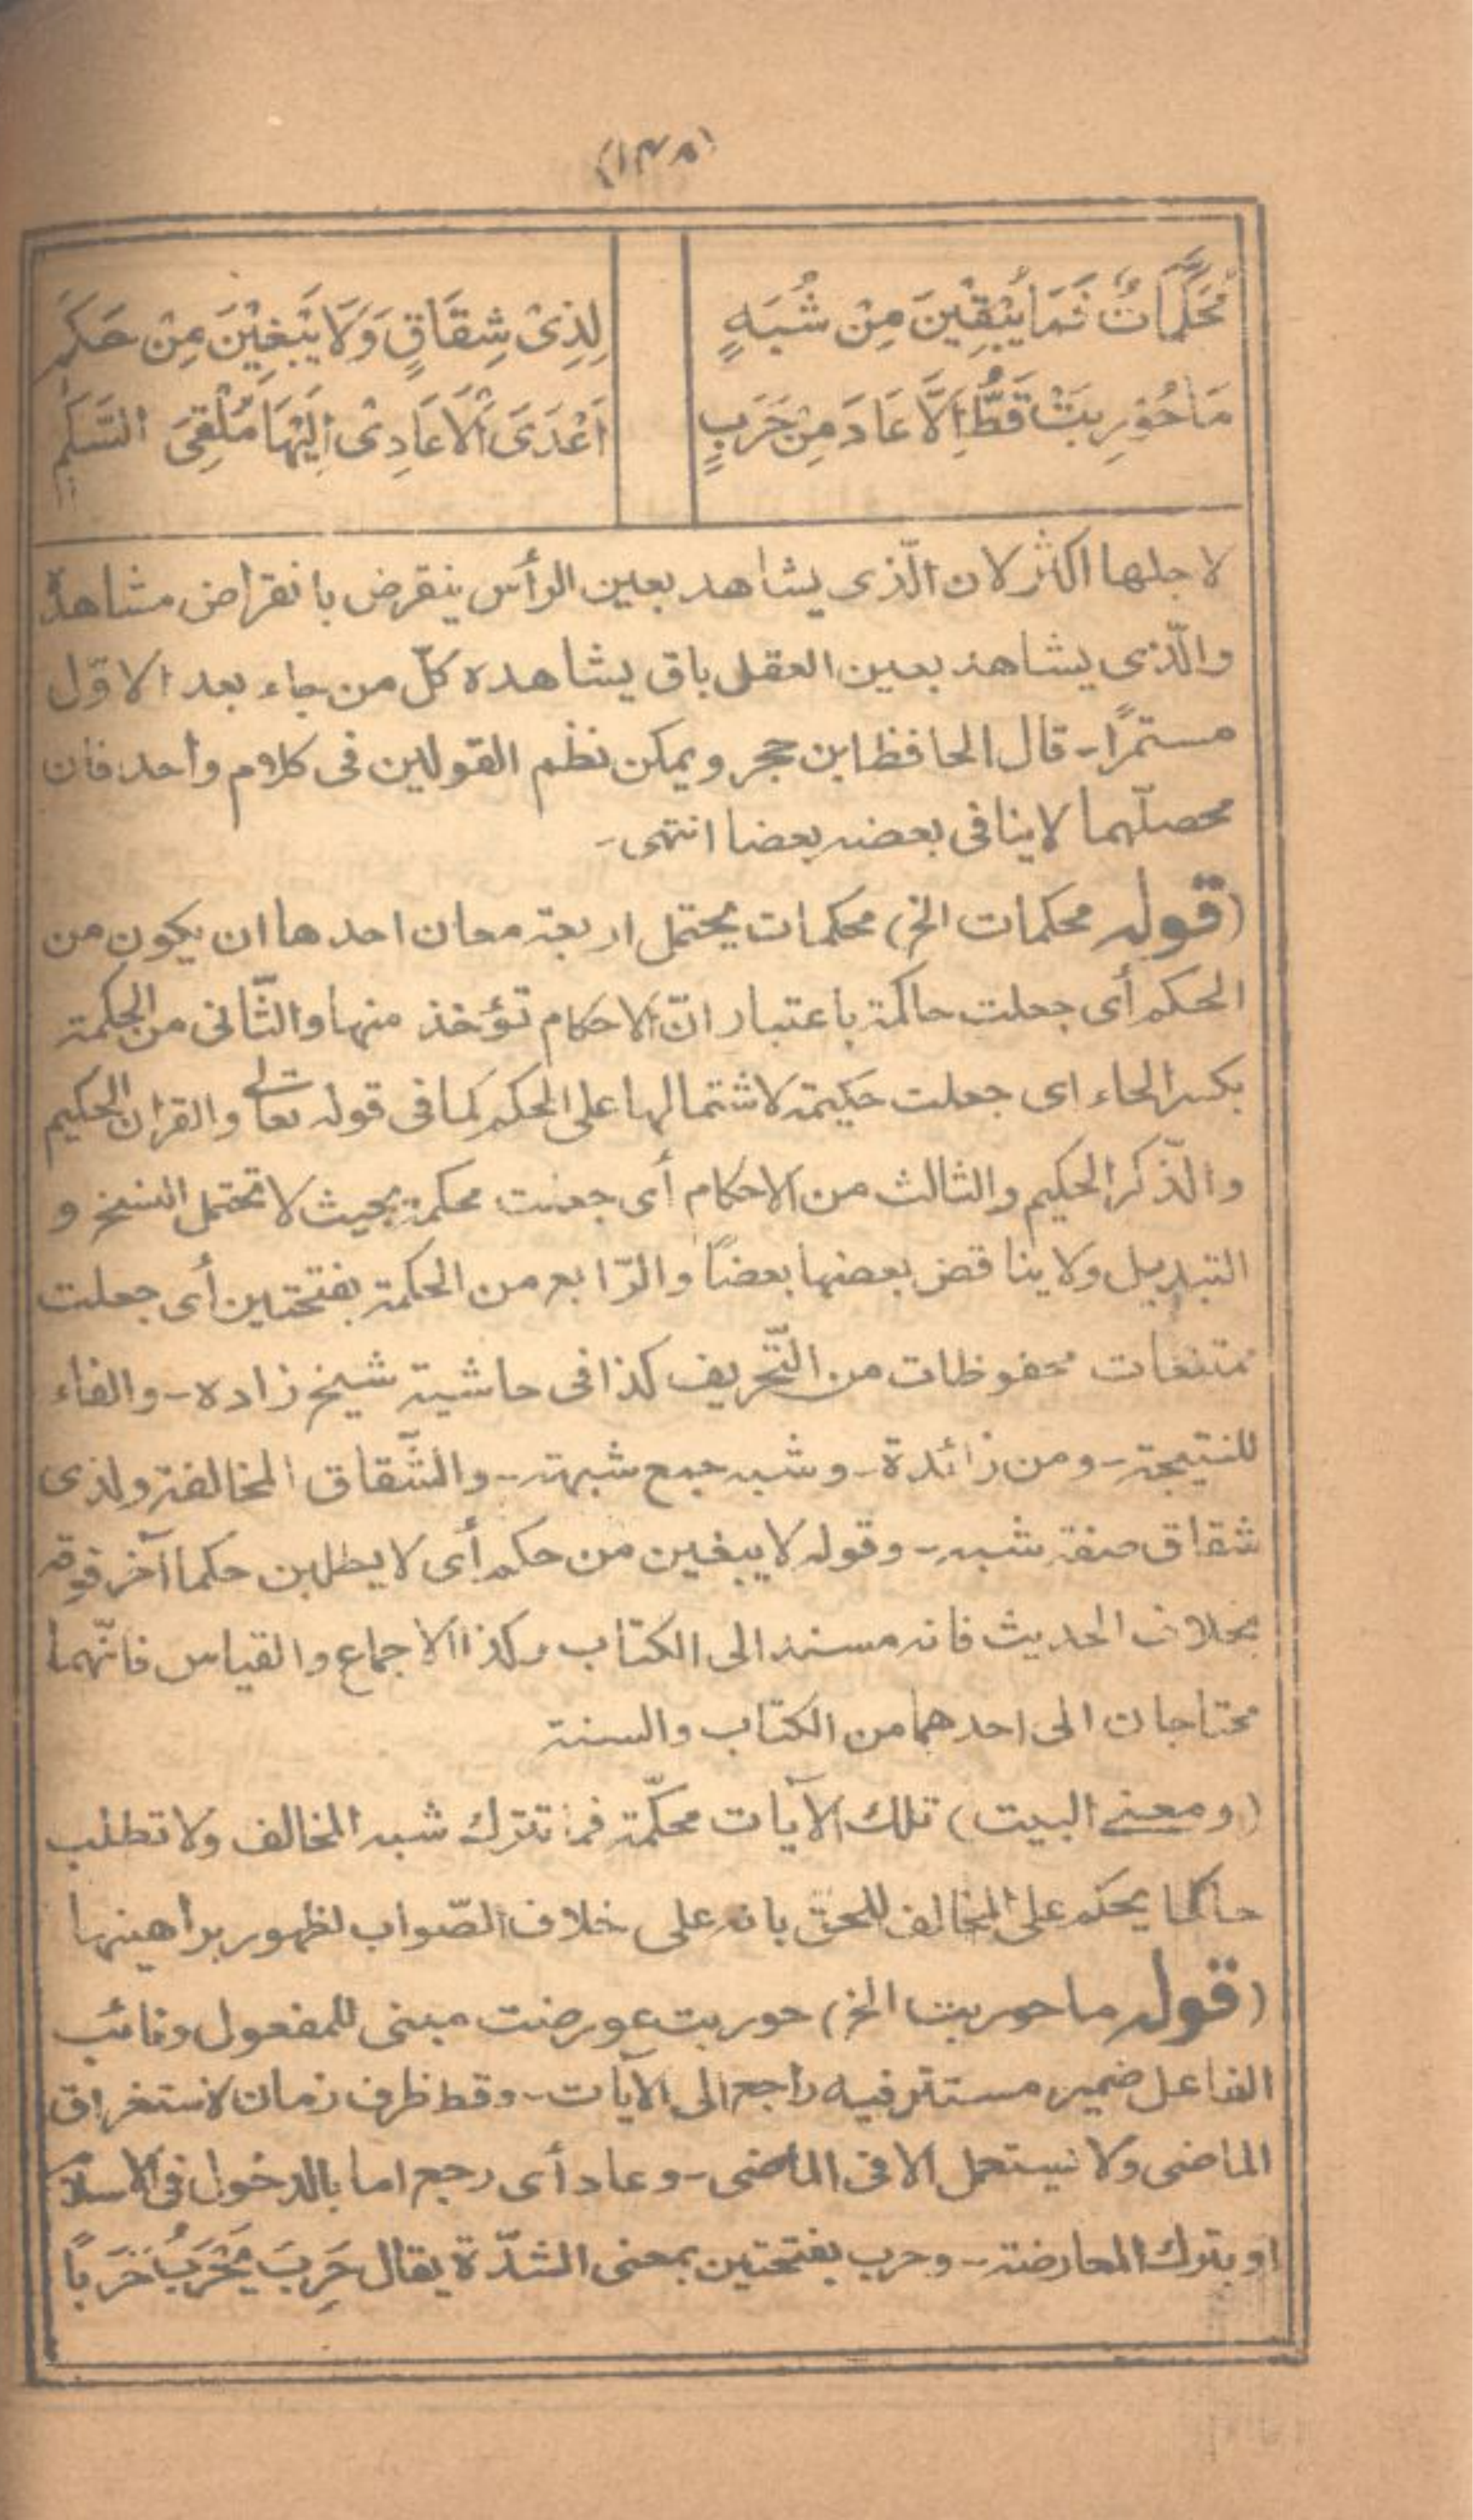 (١٣٨)
مُحَكَّمَاتٌ فَمَا يُبْقِيْنَ مِنْ شُبَهٍ لِذِىْ شِقَاقٍ وَلَا يَبْغِيْنَ مِنْ حَكَمٖ
مَا حُوْرِبَتْ قَطُّ إِلَّا عَادَ مِنْ حَرَبٍ اَعْدَى الْاَعَادِىْ اِلَيْهَا مُلْقِىَ السَّلَمٖ
لاجلها اكثر لان الّذى يشاهد بعين الرأس ينقرض بانقراض مشاهده
والّذى يشاهد بعين العقل باق يشاهده كلّ من جاء بعد الاوّل
مستمرًا - قال الحافظ ابن حجر ويمكن نظم القولين فى كلام واحد فان
محصلّهما لاينافى بعضه بعضا انتهى -
(قوله محكمات الخ) محكمات يحتمل اربعة معان احدها ان يكون من
الحكم أى جعلت حاكمة باعتبار انّ الاحكام تؤخذ منها والثّانى من الحكمة
بكسر الحاء اى جعلت حكيمة لاشتمالها على الحكم كما فى قوله تعالى والقران الحكيم
والذّكر الحكيم والثالث من الاحكام أى جعلت محكمة بحيث لا تحتمل النسخ و
التبديل ولا يناقض بعضها بعضاً والرّابع من الحكمة بفتحتين أى جعلت
ممتنعات محفوظات من التّحريف كذا فى حاشية شيخ زاده - والفاء
للنتيجة - ومن زائدة - وشبه جمع شبهة - والشّقاق المخالفة ولذى
شقاق صفة شبه - وقوله لايبغين من حكم أى لايطلبن حكما آخر فوقه
بخلاف الحديث فانه مسند الى الكتاب وكذا الاجماع والقياس فانّهما
محتاجان الى احدهما من الكتاب والسنة
(ومعنے البيت) تلك الآيات محكّمة فما تترك شبه المخالف ولا تطلب
حاكما يحكم على المخالف للحق بانه على خلاف الصّواب لظهور براهينها
(قوله ما حوربت الخ) حوربت عورضت مبنى للمفعول ونائب
الفاعل ضمير مستتر فيه راجع الى الآيات - وقط ظرف زمان لاستغراق
الماضى ولا يستعمل الا فى الماضى - وعاد أى رجع اما بالدخول فى الاسلام
او بترك المعارضة - وحرب بفتحتين بمعنى الشدّة يقال حَرِبَ يَحْرَبُ حَرَبًا